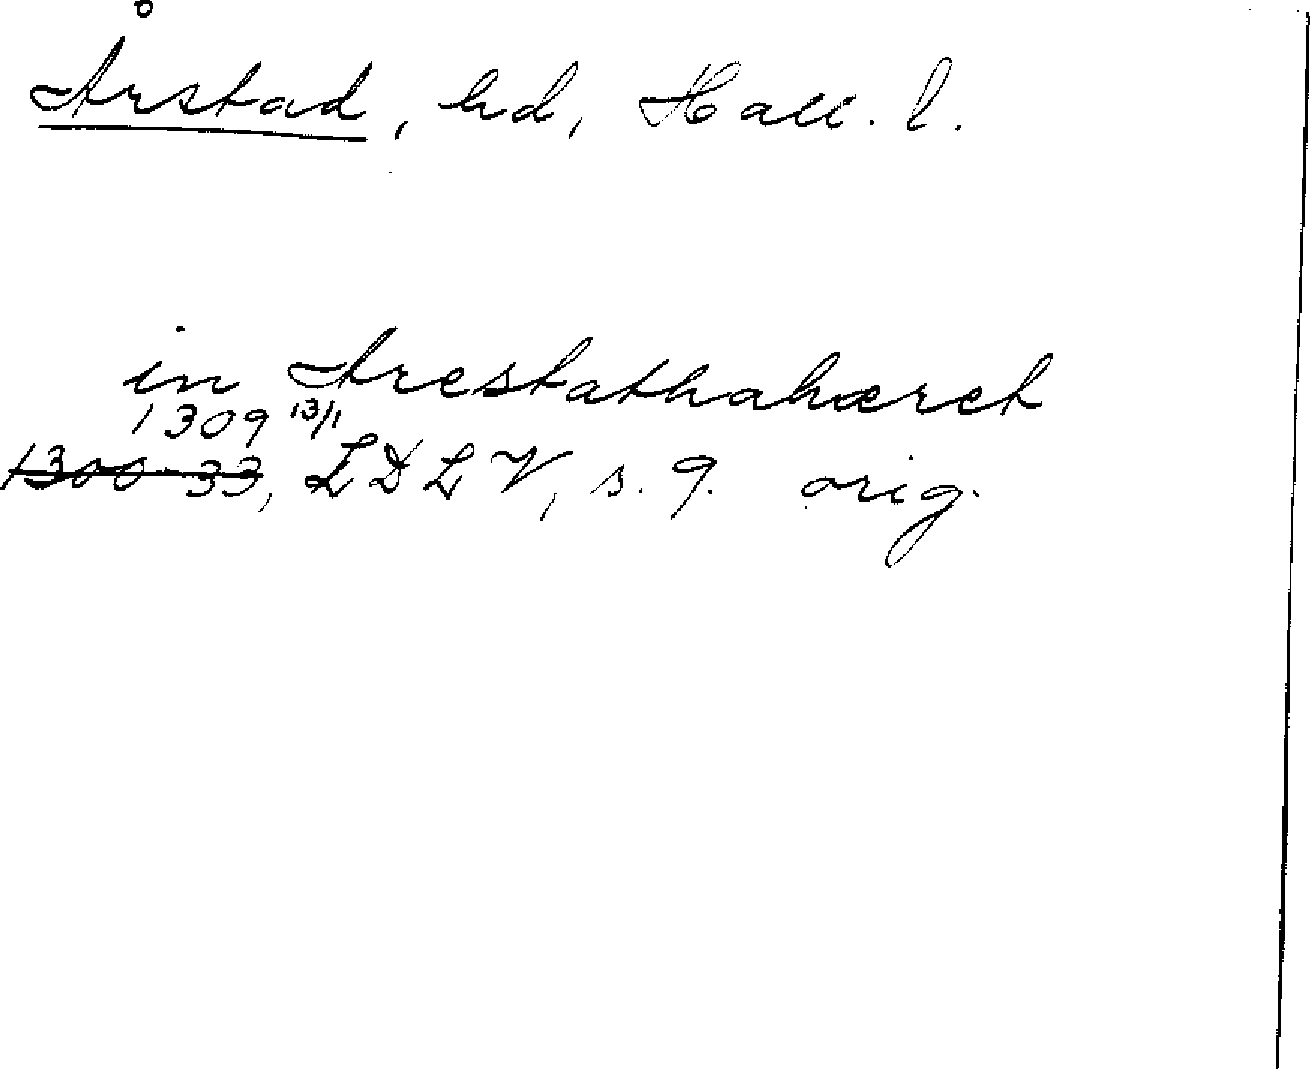 Årstad, hd, Hall. l.
in Arestathahæret
1309 13/1
1300-33, LDLV, s. 9. orig.